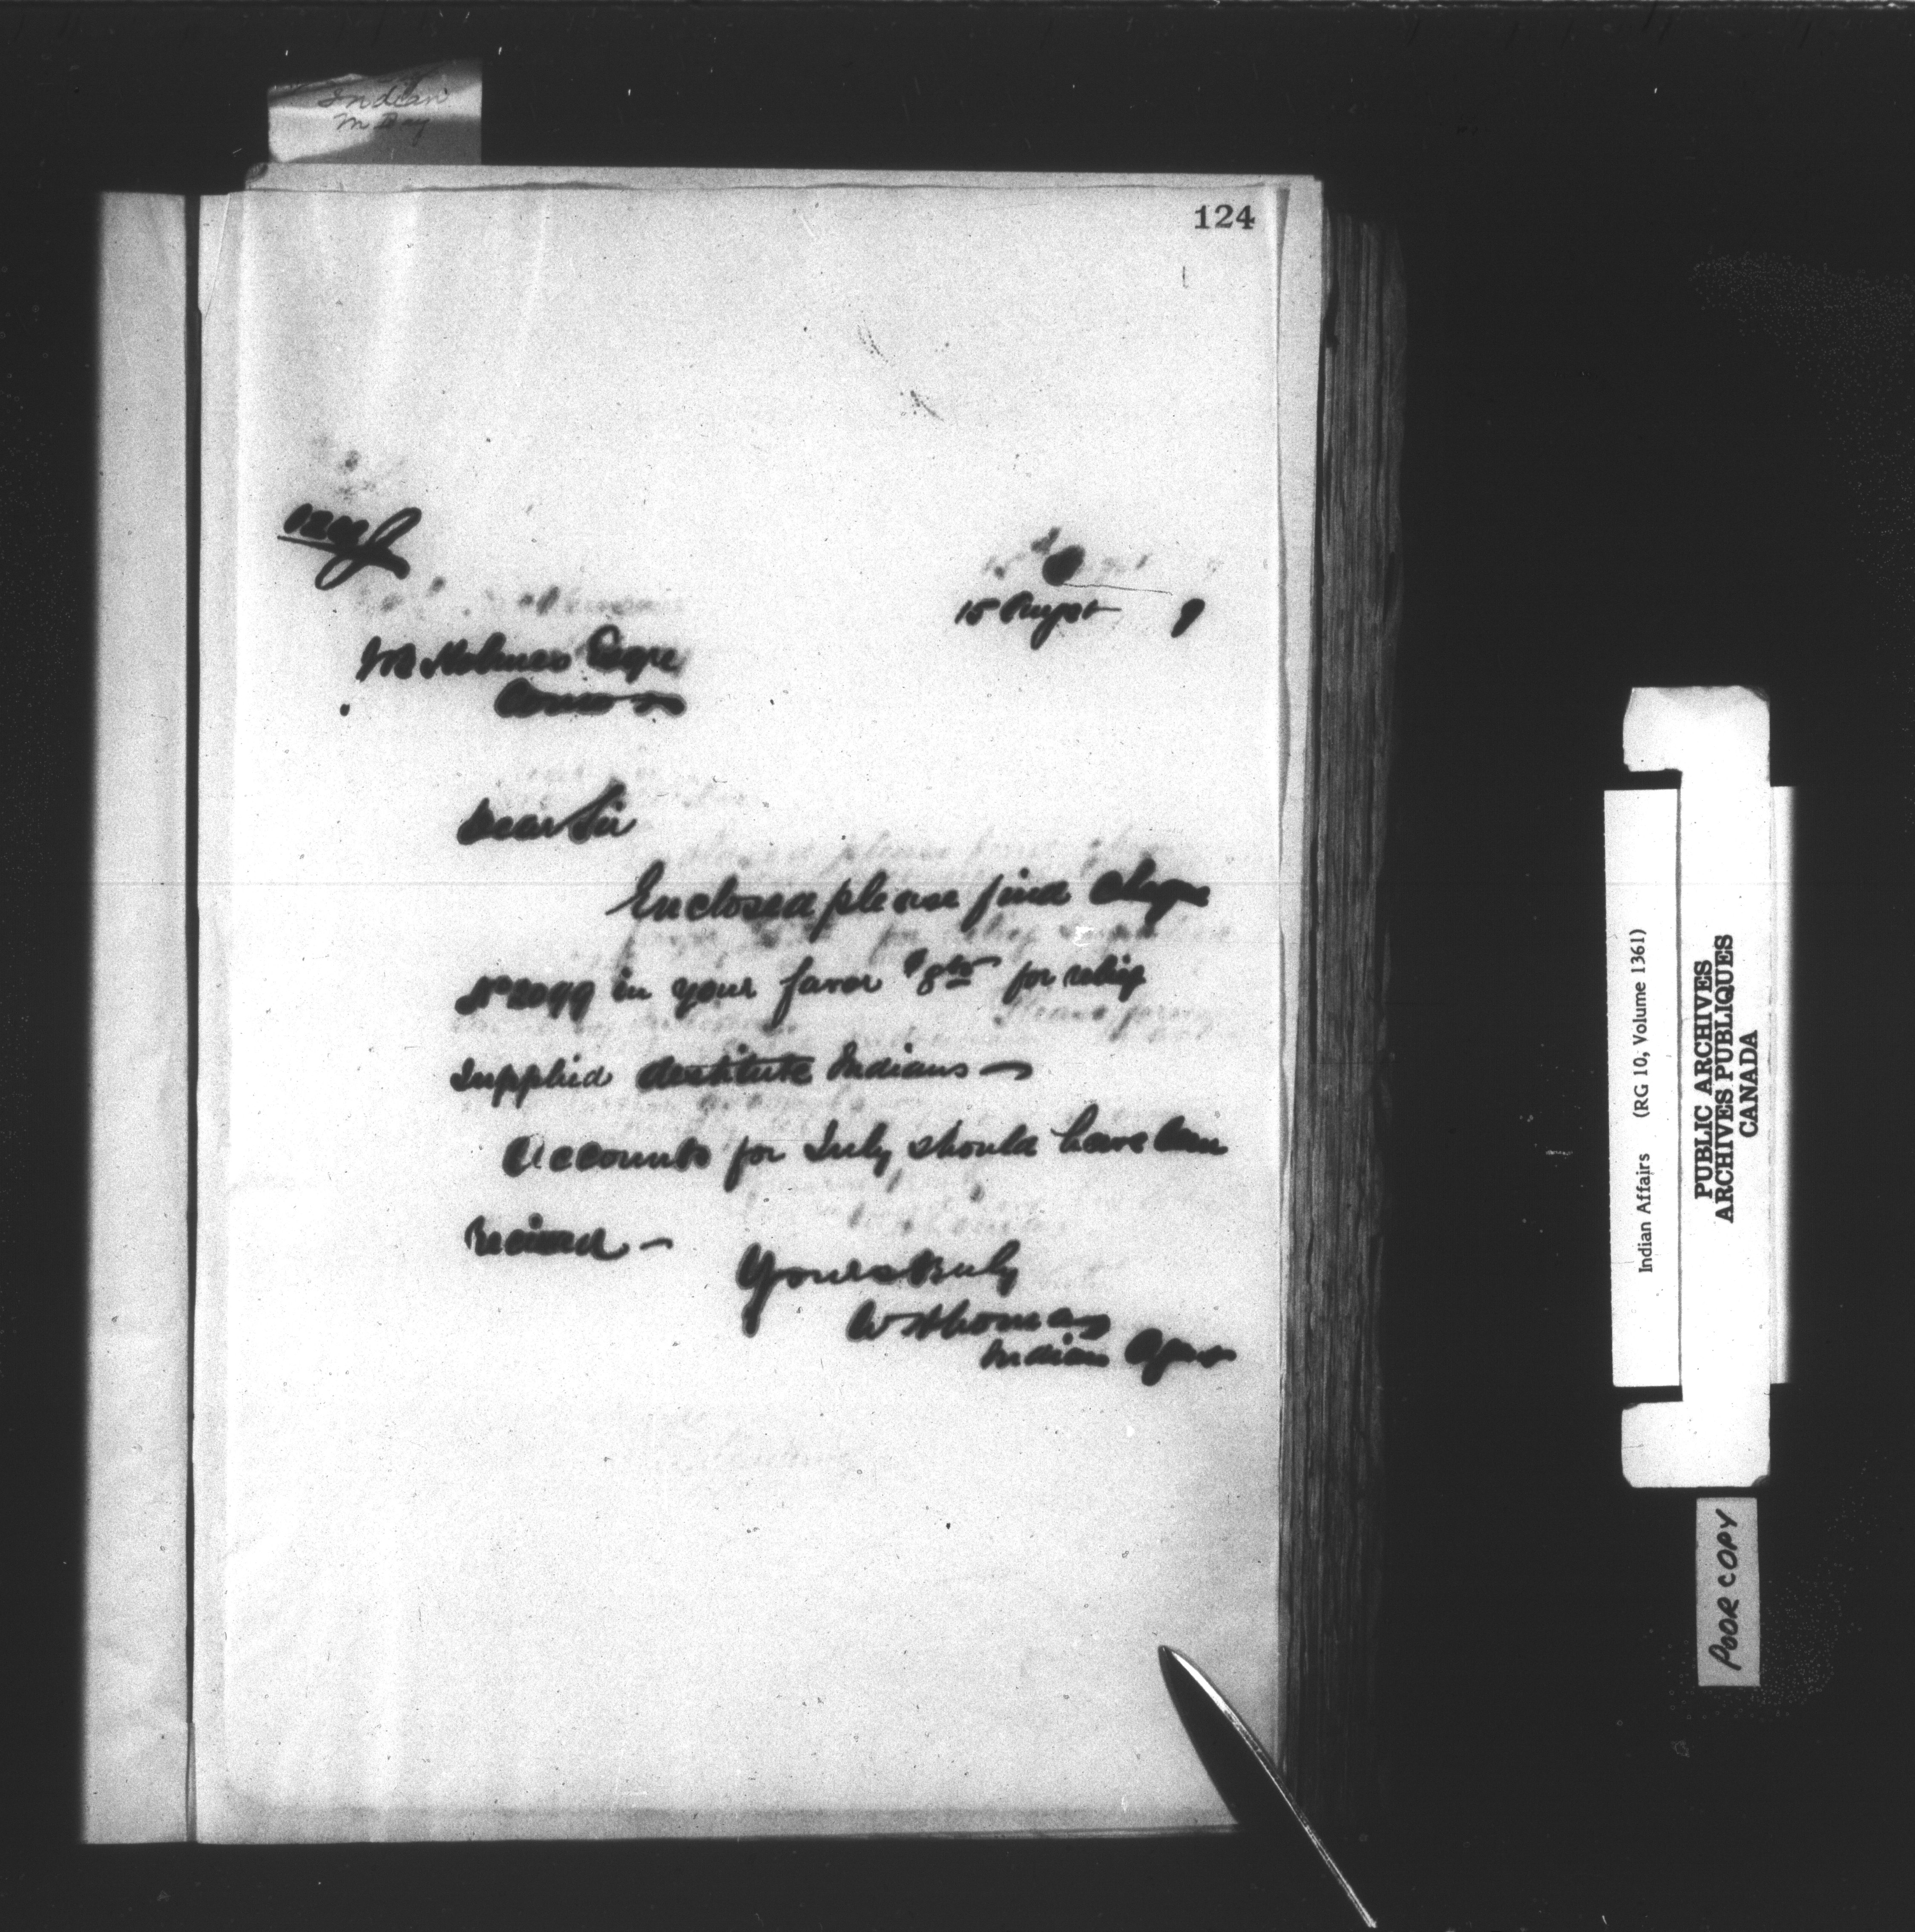 Indian
124
15 August 9
W B Holmes Esqre
Comox
Dear Sir
Enclosed please find cheque
No 2099 in your favor $8 for relief
supplied destitute Indians —
Accounts for July should have been
received —
Yours truly
W H Lomas
Indian Agent
Indian Affairs (RG 10, Volume 1361)
PUBLIC ARCHIVES
ARCHIVES PUBLIQUES
CANADA
POOR COPY